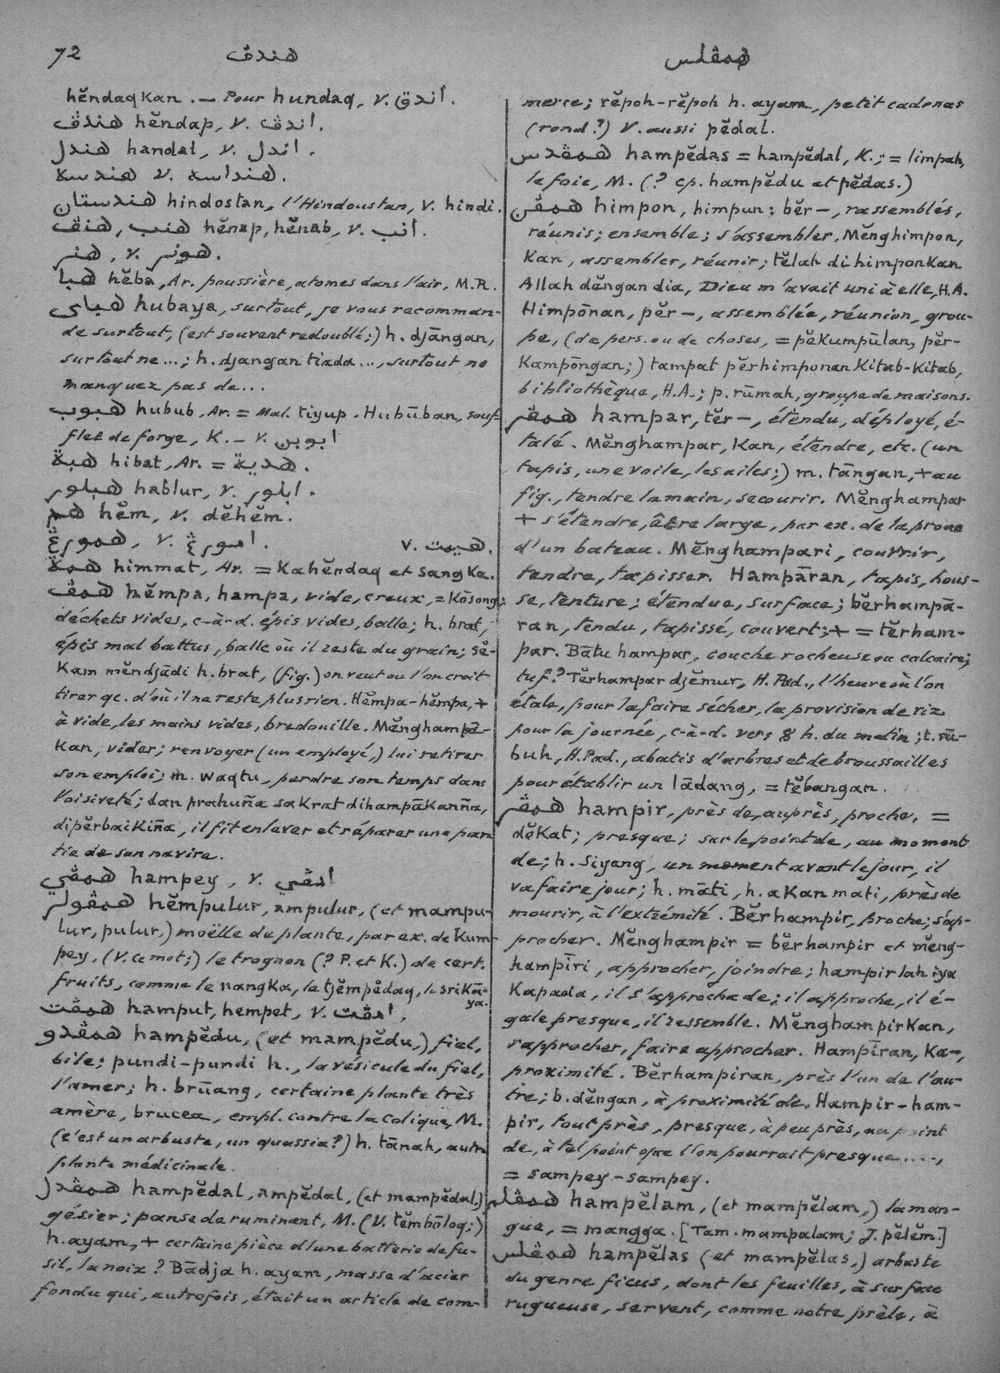 72
هندڤ
همڤلس
hĕndaqkan. — Pour hundaq, v. اندق.
هندڤ hĕndap, v. اندڤ.
هندل handal, v. اندل.
هندسة v. هنداسه.
هندستان hindostan, l'Hindoustan, v. hindi.
هنڤ, هنب hĕnap, hĕnab, v. انب.
هنر, v. هونر.
هبا hĕba, Ar. poussière, atomes dans l'air, M.R.
هباي hubaya, surtout, je vous recomman-
de surtout, (est souvent redoublé;) h. djāngan,
surtout ne...; h. djangan tiada..., surtout ne
manquez pas de...
هبوب hubub, Ar. = Mal. tiyup. Hubūban, souf-
flet de forge, K. — v. ابوبن
هبة hibat, Ar. = هدية.
هبلور hablur, v. ابلور.
هم hĕm, v. dĕhĕm.
همورڠ, v. امورڠ. v. هيمت.
همة himmat, Ar. = Kahĕndaq et sangka.
همڤ hĕmpa, hampa, vide, creux, = Kōsong;
déchets vides, c-à-d. épis vides, balle; h. brat,
épis mal battus, balle où il reste du grain; sĕ-
Kam mĕndjādi h. brat, (fig.) on veut ou l'on croit
tirer qc. d'où il ne reste plus rien. Hĕmpa-hĕmpa, +
à vide, les mains vides, bredouille. Mĕnghampā-
Kan, vider; renvoyer (un employé,) lui retirer
son emploi; m. waqtu, perdre son temps dans
l'oisiveté; dan prahuña sakrat dihampākanña,
dipĕrbaikiña, il fit enlever et réparer une par
tie de son navire.
همڤي hampey, v. امڤي
همڤولر hĕmpulur, ampulur, (et mampu-
lur, pulur,) moëlle de plante, par ex. de Kum-
pey, (V. ce mot;) le trognon (? P. et K.) de cert.
fruits, comme le nangka, le tjĕmpĕdaq, le srikā-
ya.
همڤت hamput, hempet, v. امڤت.
همڤدو hampĕdu, (et mampĕdu,) fiel,
bile; pundi-pundi h., la vésicule du fiel,
l'amer; h. brūang, certaine plante très
amère, brucea, empl. contre la colique, M.
(c'est un arbuste, un quassia?) h. tānah, autre
plante médicinale.
همڤدل hampĕdal, ampĕdal, (et mampĕdal,)
gésier; panse de ruminant, M. (V. tĕmbōloq;)
h. ayam, + certaine pièce d'une batterie de fu-
sil, la noix? Bādja h. ayam, masse d'acier
fondu qui, autrefois, était un article de com-
merce; rĕpoh-rĕpoh h. ayam, petit cadenas
(rond?) V. aussi pĕdal.
همڤدس hampĕdas = hampĕdal, K.; = limpah,
le foie, M. (? cp. hampĕdu et pĕdas.)
همڤن himpon, himpun; bĕr—, rassemblés,
réunis; ensemble; s'assembler. Mĕnghimpon,
Kan, assembler, réunir; tĕlah di himponkan
Allah dĕngan dia, Dieu m'avait uni à elle, H.A.
Himpōnan, pĕr—, assemblée, réunion, grou-
pe, (de pers. ou de choses, = pĕkumpūlan, pĕr-
kampōngan;) tampat pĕrhimponan kitab-kitab,
bibliothèque, H.A.; p. rūmah, groupe de maisons.
همڤر hampar, tĕr—, étendu, déployé, é-
talé. Mĕnghampar, kan, étendre, etc. (un
tapis, une voile, les ailes;) m. tāngan, + au
fig., tendre la main, secourir. Mĕnghampar
+ s'étendre, être large, par ex. de la proue
d'un bateau. Mĕnghampari, couvrir,
tendre, tapisser. Hampāran, tapis, hous-
se, tenture; étendue, surface; bĕrhampā-
ran, tendu, tapissé, couvert; + = tĕrham-
par. Bātu hampar, couche rocheuse ou calcaire;
tuf? Tĕrhampar djĕmur, H. Pad., l'heure où l'on
étale, pour la faire sécher, la provision de riz
pour la journée, c-à-d. vers 8 h. du matin; t. rū-
buh, H. Pad., abatis d'arbres et de broussailles
pour établir un lādang, = tĕbangan.
همڤر hampir, près de, auprès, proche, =
dĕkat; presque; sur le point de, au moment
de; h. siyang, un moment avant le jour, il
va faire jour; h. māti, h. akan mati, près de
mourir, à l'extrémité. Bĕrhampir, proche; s'ap-
procher. Mĕnghampir = bĕrhampir et mĕng-
hampīri, approcher, joindre; hampirlah iya
kapada, il s'approcha de; il approche, il é-
gale presque, il ressemble. Mĕnghampirkan,
rapprocher, faire approcher. Hampīran, ka—,
proximité. Bĕrhampiran, près l'un de l'au-
tre; b. dĕngan, à proximité de. Hampir-ham-
pir, tout près, presque, à peu près, au point
de, à tel point que l'on pourrait presque....,
= sampey-sampey.
همڤلم hampĕlam, (et mampĕlam,) la man-
gue, = mangga. [Tam. mampalam; J. pĕlĕm.]
همڤلس hampĕlas (et mampĕlas,) arbuste
du genre ficus, dont les feuilles, à surface
rugueuse, servent, comme notre prèle, à